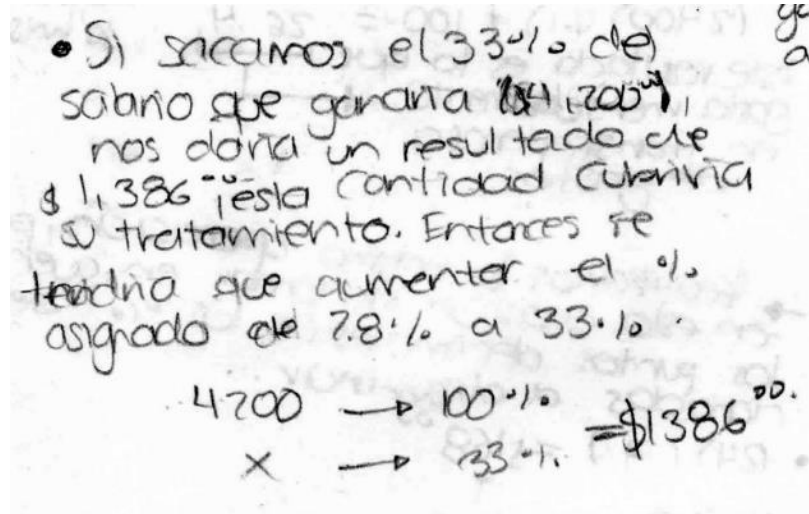 • Si sacamos el 33% del
salario que ganaría ($4,200.00),
nos daría un resultado de
$1,386.00, esta cantidad cubriría
su tratamiento. Entonces se
tendría que aumentar el %
asignado de 28% a 33%.
4200 → 100%
x → 33%
=$1386.00.